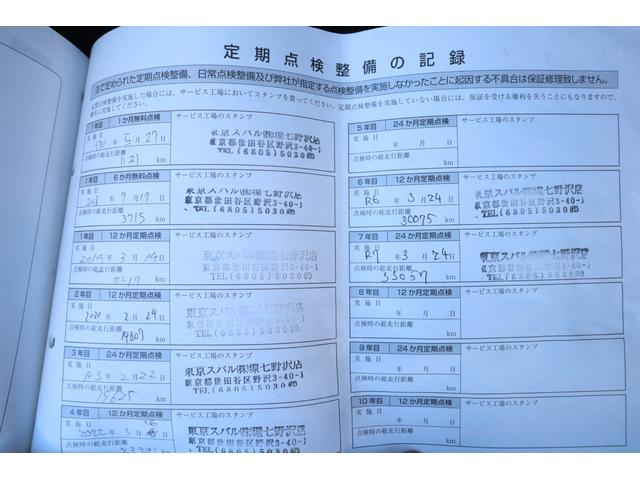 定期点検整備の記録
法で定められた定期点検整備、日常点検整備及び弊社が指定する点検整備を実施しなかったことに起因する不具合は保証修理致しません。
定期点検整備を実施した場合には、サービス工場においてスタンプを貰ってください。定期点検整備を実施していない場合には、保証を受ける権利を失うことにもなりますので、
1年目 1か月無料点検
サービス工場のスタンプ
実施日
年 5月27日
点検時の総走行距離
1121 km
東京スバル㈱環七野沢店
東京都世田谷区野沢3-40-1
TEL(6805)5030㈹
1年目 6か月無料点検
サービス工場のスタンプ
実施日
年 9月17日
点検時の総走行距離
3715 km
東京スバル㈱環七野沢店
東京都世田谷区野沢3-40-1
TEL(6805)5030㈹
1年目 12か月定期点検
サービス工場のスタンプ
実施日
2019年 3月19日
点検時の総走行距離
7217 km
東京スバル㈱環七野沢店
東京都世田谷区野沢3-40-1
TEL(6805)5030㈹
2年目 12か月定期点検
サービス工場のスタンプ
実施日
2020年 2月29日
点検時の総走行距離
14807 km
東京スバル㈱環七野沢店
東京都世田谷区野沢3-40-1
TEL(6805)5030㈹
3年目 24か月定期点検
サービス工場のスタンプ
実施日
R3年 2月22日
点検時の総走行距離
19625 km
東京スバル㈱環七野沢店
東京都世田谷区野沢3-40-1
TEL(6805)5030㈹
4年目 12か月定期点検
サービス工場のスタンプ
実施日
2022年 3月 日
点検時の総走行距離
km
東京スバル㈱環七野沢店
東京都世田谷区野沢3-40-1
TEL(6805)5030㈹
5年目 24か月定期点検
サービス工場のスタンプ
実施日
年 月 日
点検時の総走行距離
km
6年目 12か月定期点検
サービス工場のスタンプ
実施日
R6年 3月24日
点検時の総走行距離
30075 km
東京スバル㈱環七野沢店
東京都世田谷区野沢3-40-1
TEL(6805)5030㈹
7年目 24か月定期点検
サービス工場のスタンプ
実施日
R7年 3月24日
点検時の総走行距離
33057 km
東京スバル㈱環七野沢店
東京都世田谷区野沢3-40-1
TEL(6805)5030㈹
8年目 12か月定期点検
サービス工場のスタンプ
実施日
年 月 日
点検時の総走行距離
km
9年目 24か月定期点検
サービス工場のスタンプ
実施日
年 月 日
点検時の総走行距離
km
10年目 12か月定期点検
サービス工場のスタンプ
実施日
年 月 日
点検時の総走行距離
km